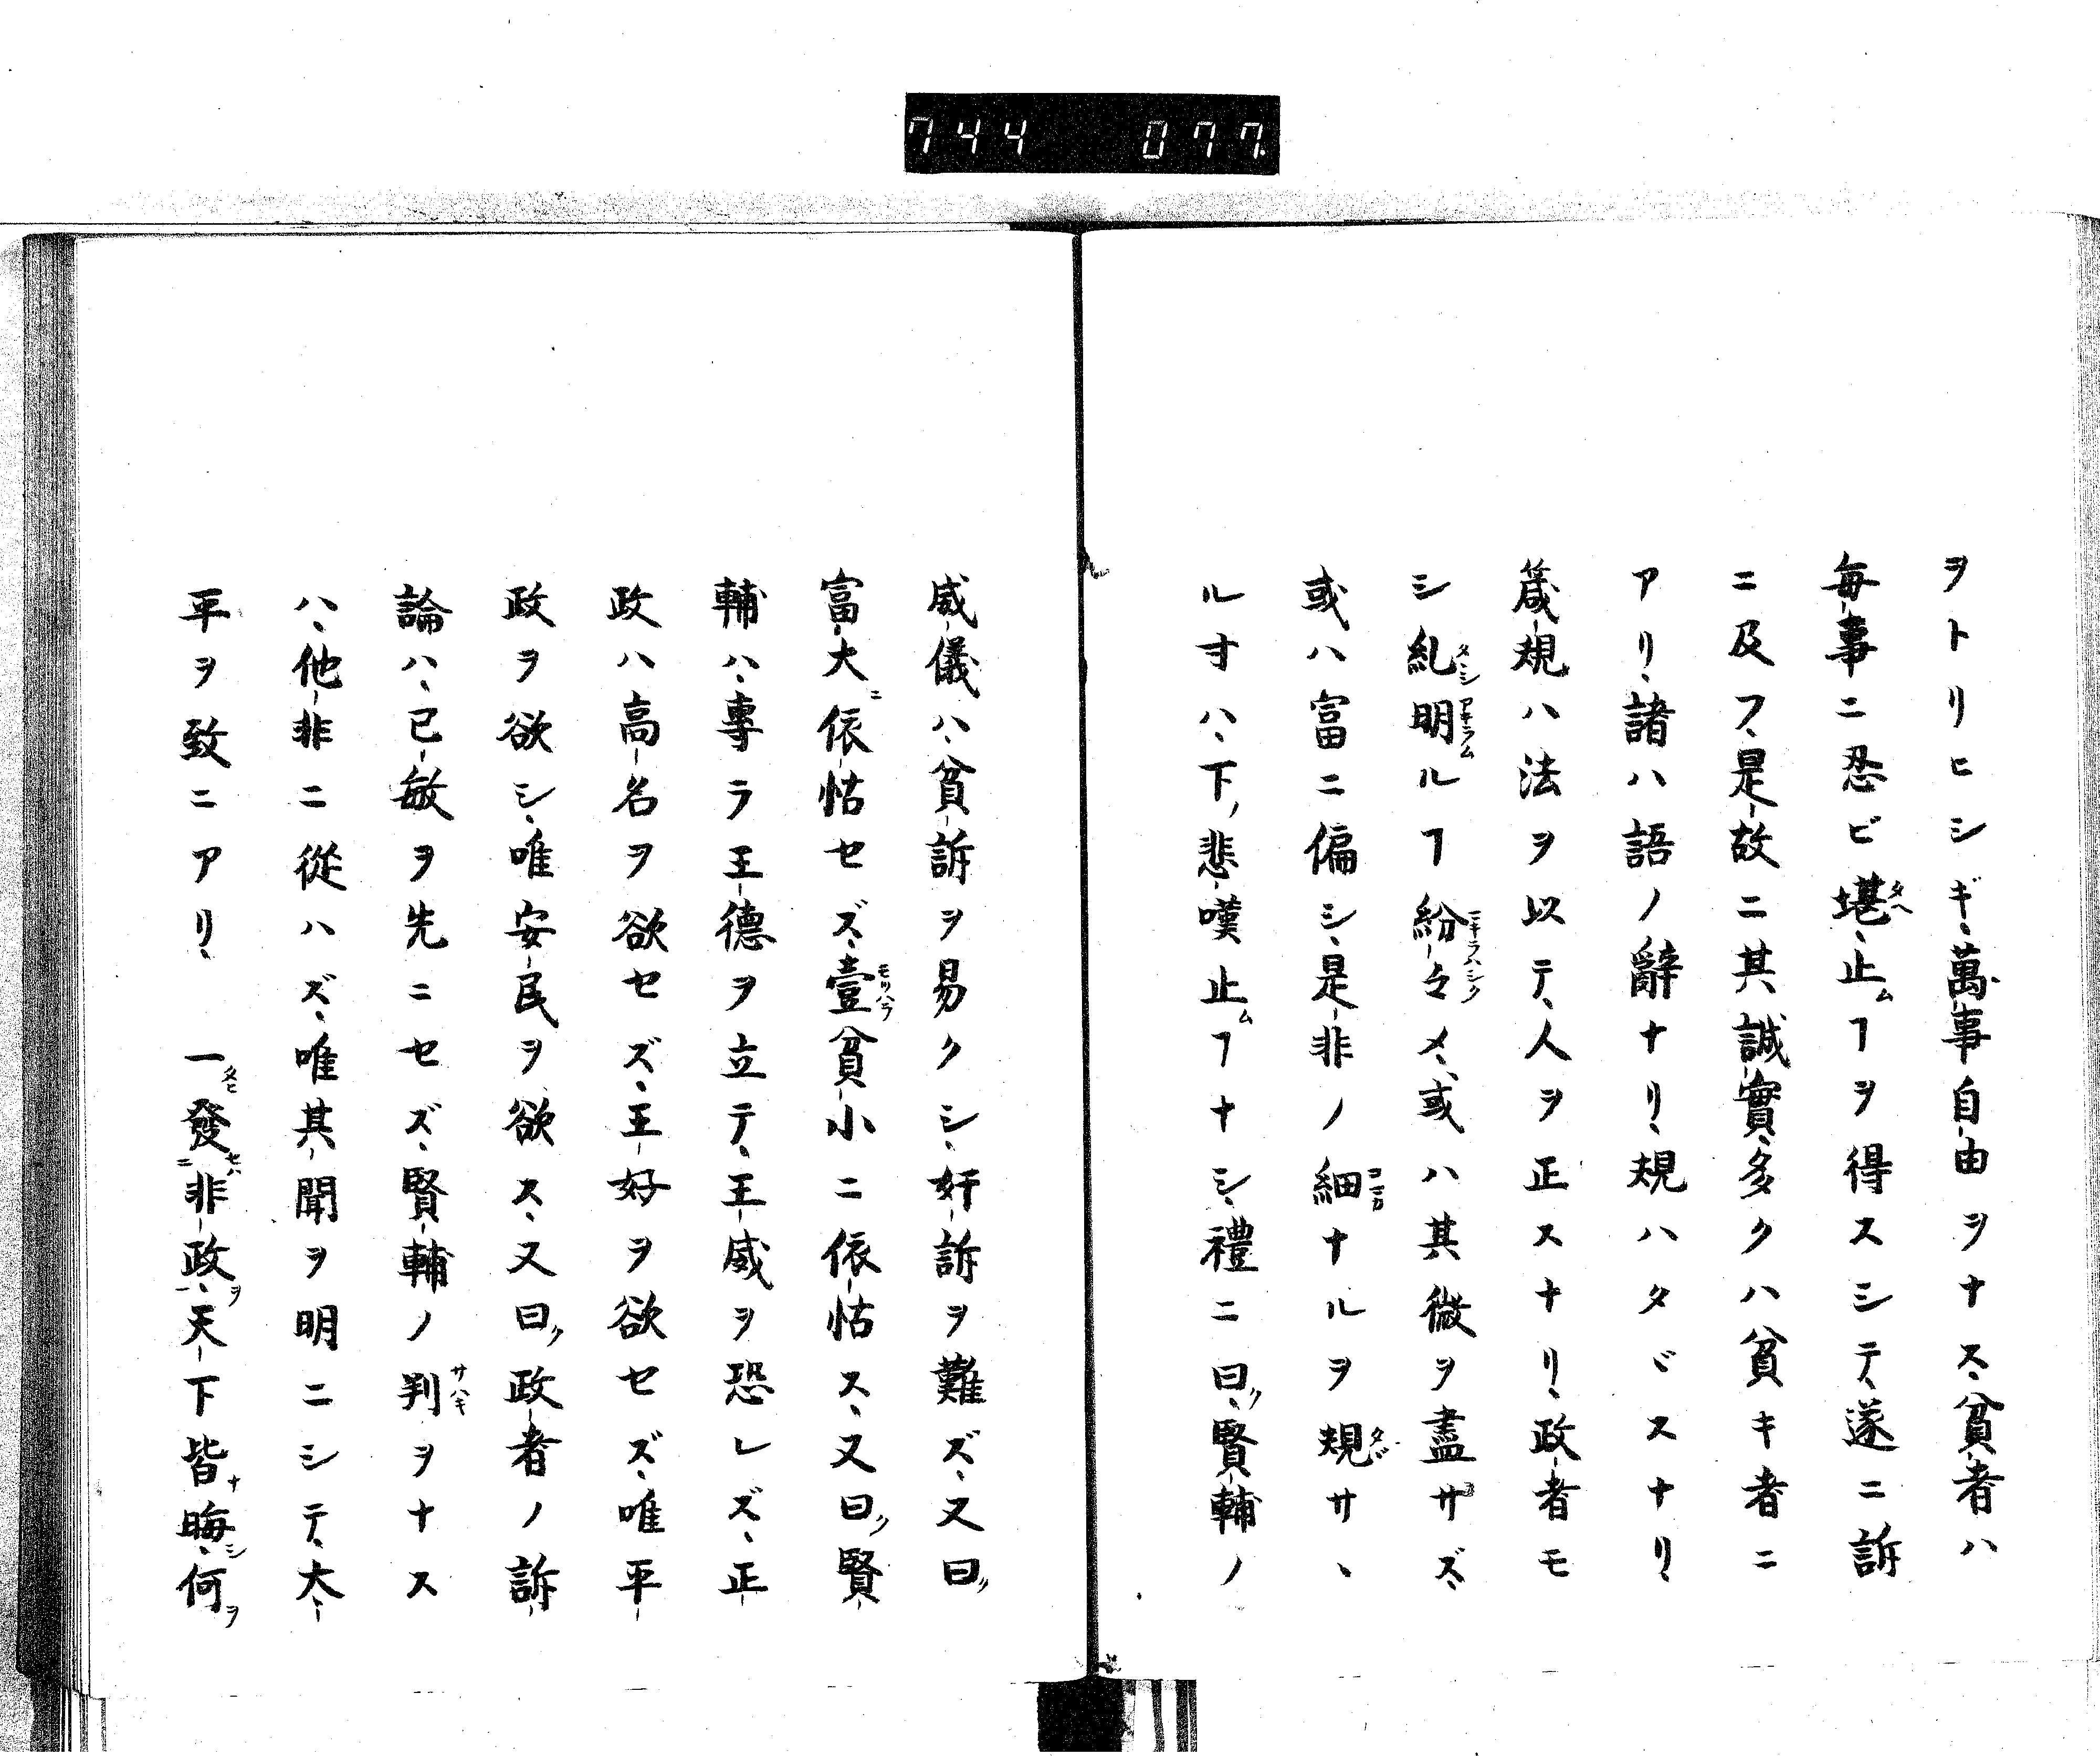 744 077.
ヲトリヒシギ、萬事自由ヲナス、貧者ハ
毎事ニ忍ビ堪、止ムヿヲ得スシテ、遂ニ訴
ニ及フ、是故ニ其誠實、多クハ貧キ者ニ
アリ、諸ハ語ノ辭ナリ、規ハタヾスナリ、
箴規ハ法ヲ以テ、人ヲ正スナリ、政者モ
シ糺明ルヿ紛々メ、或ハ其微ヲ盡サズ、
或ハ富ニ偏シ、是非ノ細ナルヲ規サヽ
ルオハ、下ノ悲嘆止ムヿナシ、禮ニ曰ク、賢輔ノ
威儀ハ、貧訴ヲ易クシ、奸訴ヲ難ズ、又曰ク
富大ニ依怙セズ、壹貧小ニ依怙ス、又曰ク賢
輔ハ、專ラ王德ヲ立テ、王威ヲ恐レズ、正
政ハ高名ヲ欲セズ、王好ヲ欲セズ、唯平
政ヲ欲シ、唯安民ヲ欲ス、又曰ク、政者ノ訴
論ハ、已敏ヲ先ニセズ、賢輔ノ判ヲナス
ハ、他非ニ從ハズ、唯其聞ヲ明ニシテ、大
平ヲ致ニアリ、 一發非政、天下皆晦、何